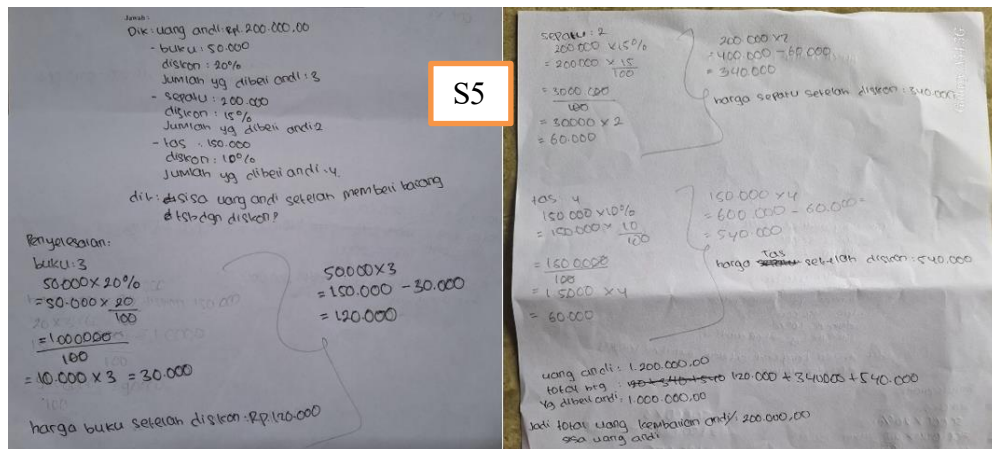 Jawab:
Dik: uang andi: Rp. 1.200.000,00
- buku: 50.000
diskon: 20%
Jumlah yg dibeli andi: 3
- sepatu: 200.000
diskon: 15%
Jumlah yg dibeli andi 2
- tas : 150.000
diskon: 10%
Jumlah yg dibeli andi: 4.
dit: sisa uang andi setelah membeli barang
tsb dgn diskon?
Penyelesaian:
buku: 3
50.000 × 20%
= 50.000 × 20/100
= 1000000/100
= 10.000 × 3 = 30.000
50.000 × 3
= 150.000 - 30.000
= 120.000
harga buku setelah diskon: Rp. 120.000
S5
sepatu: 2
200.000 × 15%
= 200000 × 15/100
= 3000.000/100
= 30000 × 2
= 60.000
200.000 × 2
= 400.000 - 60.000
= 340.000
harga sepatu setelah diskon: 340.000
tas 4
150.000 × 10%
= 150.000 × 10/100
= 1500000/100
= 15000 × 4
= 60.000
150.000 × 4
= 600.000 - 60.000 =
= 540.000
harga tas setelah diskon: 540.000
uang andi: 1.200.000,00
total brg : 120 + 340 + 540 120.000 + 340000 + 540.000
yg dibeli andi: 1.000.000,00
Jadi total uang kembalian andi/ 200.000,00
sisa uang andi